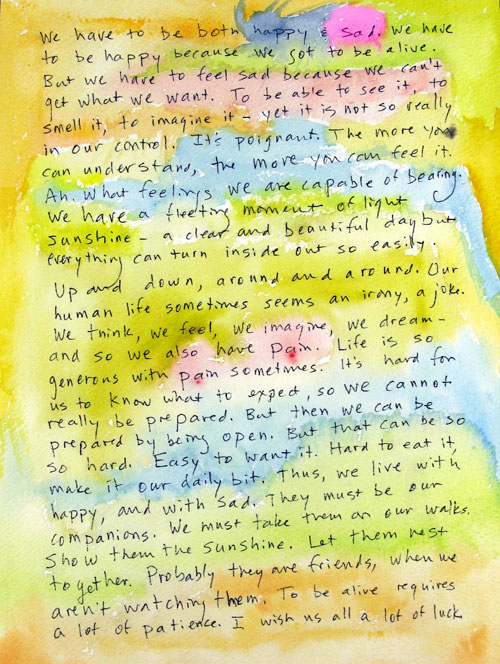 We have to be both happy & sad. We have
to be happy because we got to be alive.
But we have to feel sad because we can't
get what we want. To be able to see it, to
smell it, to imagine it – yet it is not so really
in our control. It's poignant. The more you
can understand, the more you can feel it.
Ah. What feelings we are capable of bearing.
We have a fleeting moment of light
sunshine – a clear and beautiful day but
everything can turn inside out so easily.
Up and down, around and around. Our
human life sometimes seems an irony, a joke.
We think, we feel, we imagine, we dream –
and so we also have pain. Life is so
generous with pain sometimes. It's hard for
us to know what to expect, so we cannot
really be prepared. But then we can be
prepared by being open. But that can be so
so hard. Easy to want it. Hard to eat it,
make it our daily bit. Thus, we live with
happy, and with sad. They must be our
companions. We must take them on our walks.
Show them the sunshine. Let them nest
together. Probably they are friends, when we
aren't watching them. To be alive requires
a lot of patience. I wish us all a lot of luck